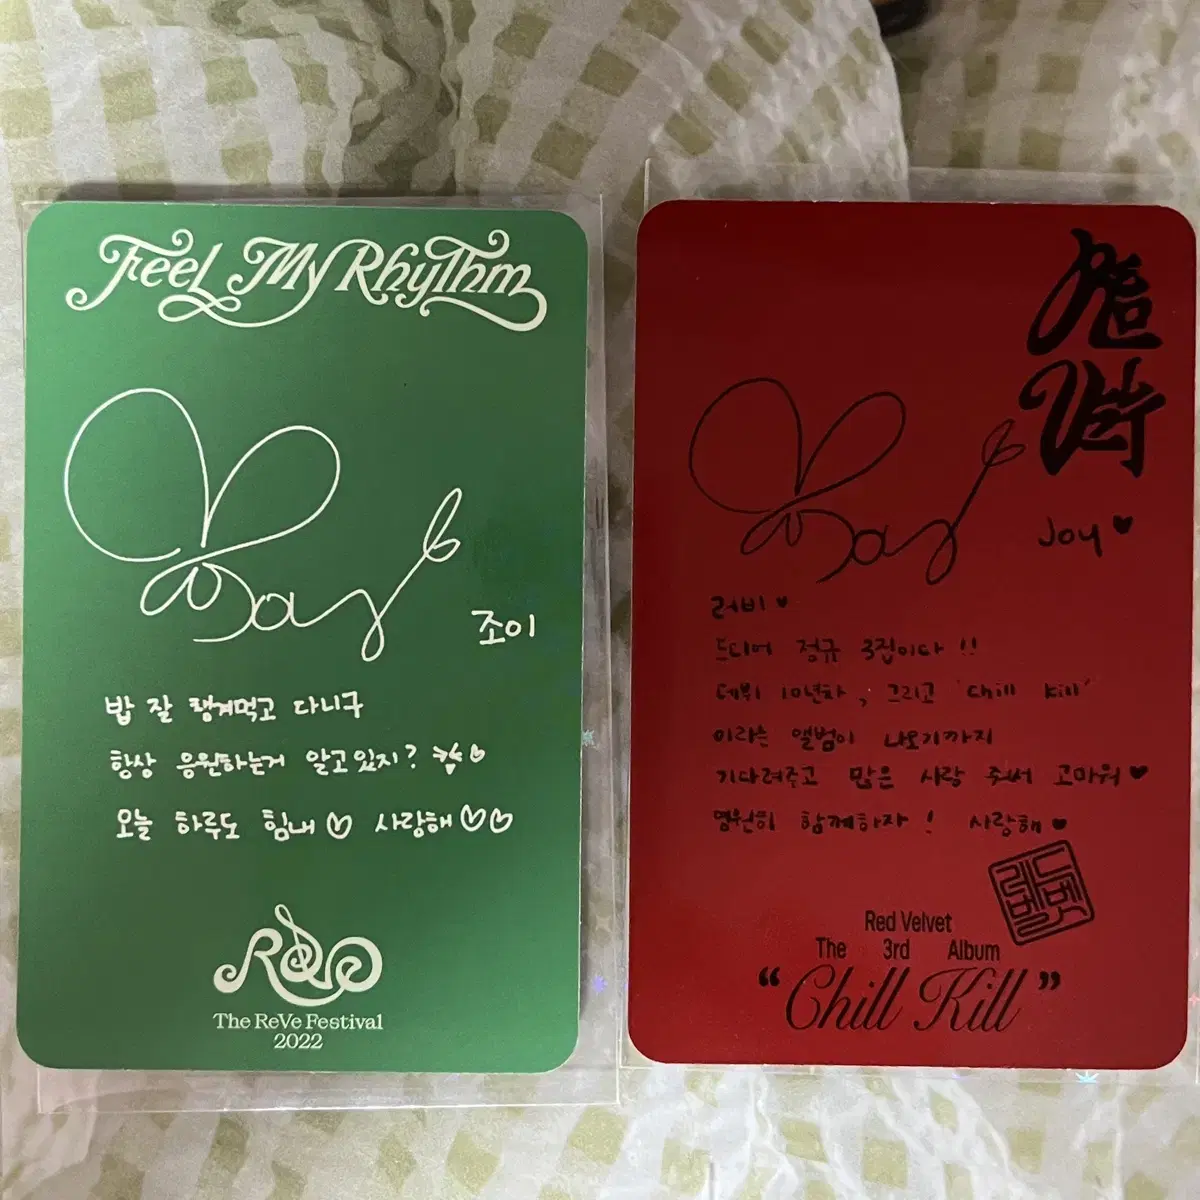 Feel My Rhythm
조이
밥 잘 챙겨먹고 다니구
항상 응원하는거 알고있지?
오늘 하루도 힘내♡ 사랑해♡♡
ReVe
The ReVe Festival
2022
Joy♥
러비♥
드디어 정규 3집이다!!
데뷔 10년차, 그리고 'Chill Kill'
이라는 앨범이 나오기까지
기다려주고 많은 사랑 주써 고마워♥
영원히 함께하자! 사랑해♥
레드벨벳
Red Velvet
The 3rd Album
“Chill Kill”